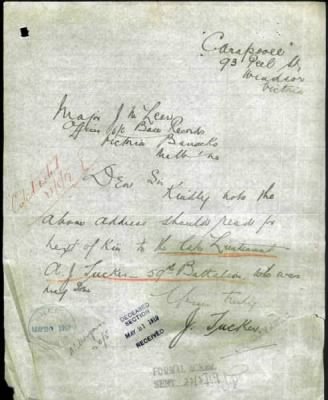 "Carapooee"
93 Peel St
Windsor
Victoria
Major J McLean
Officer i/c Base Records
Victoria Barracks
Melb'ne
Dear Sir
Kindly note the
above address should read for
next of Kin to the late Lieutenant
A. J Tucker 59th Battalion who was
my son
Yours truly
J. Tucker
DECEASED
SECTION
MAY 31 1919
RECEIVED
FORMAL
SENT